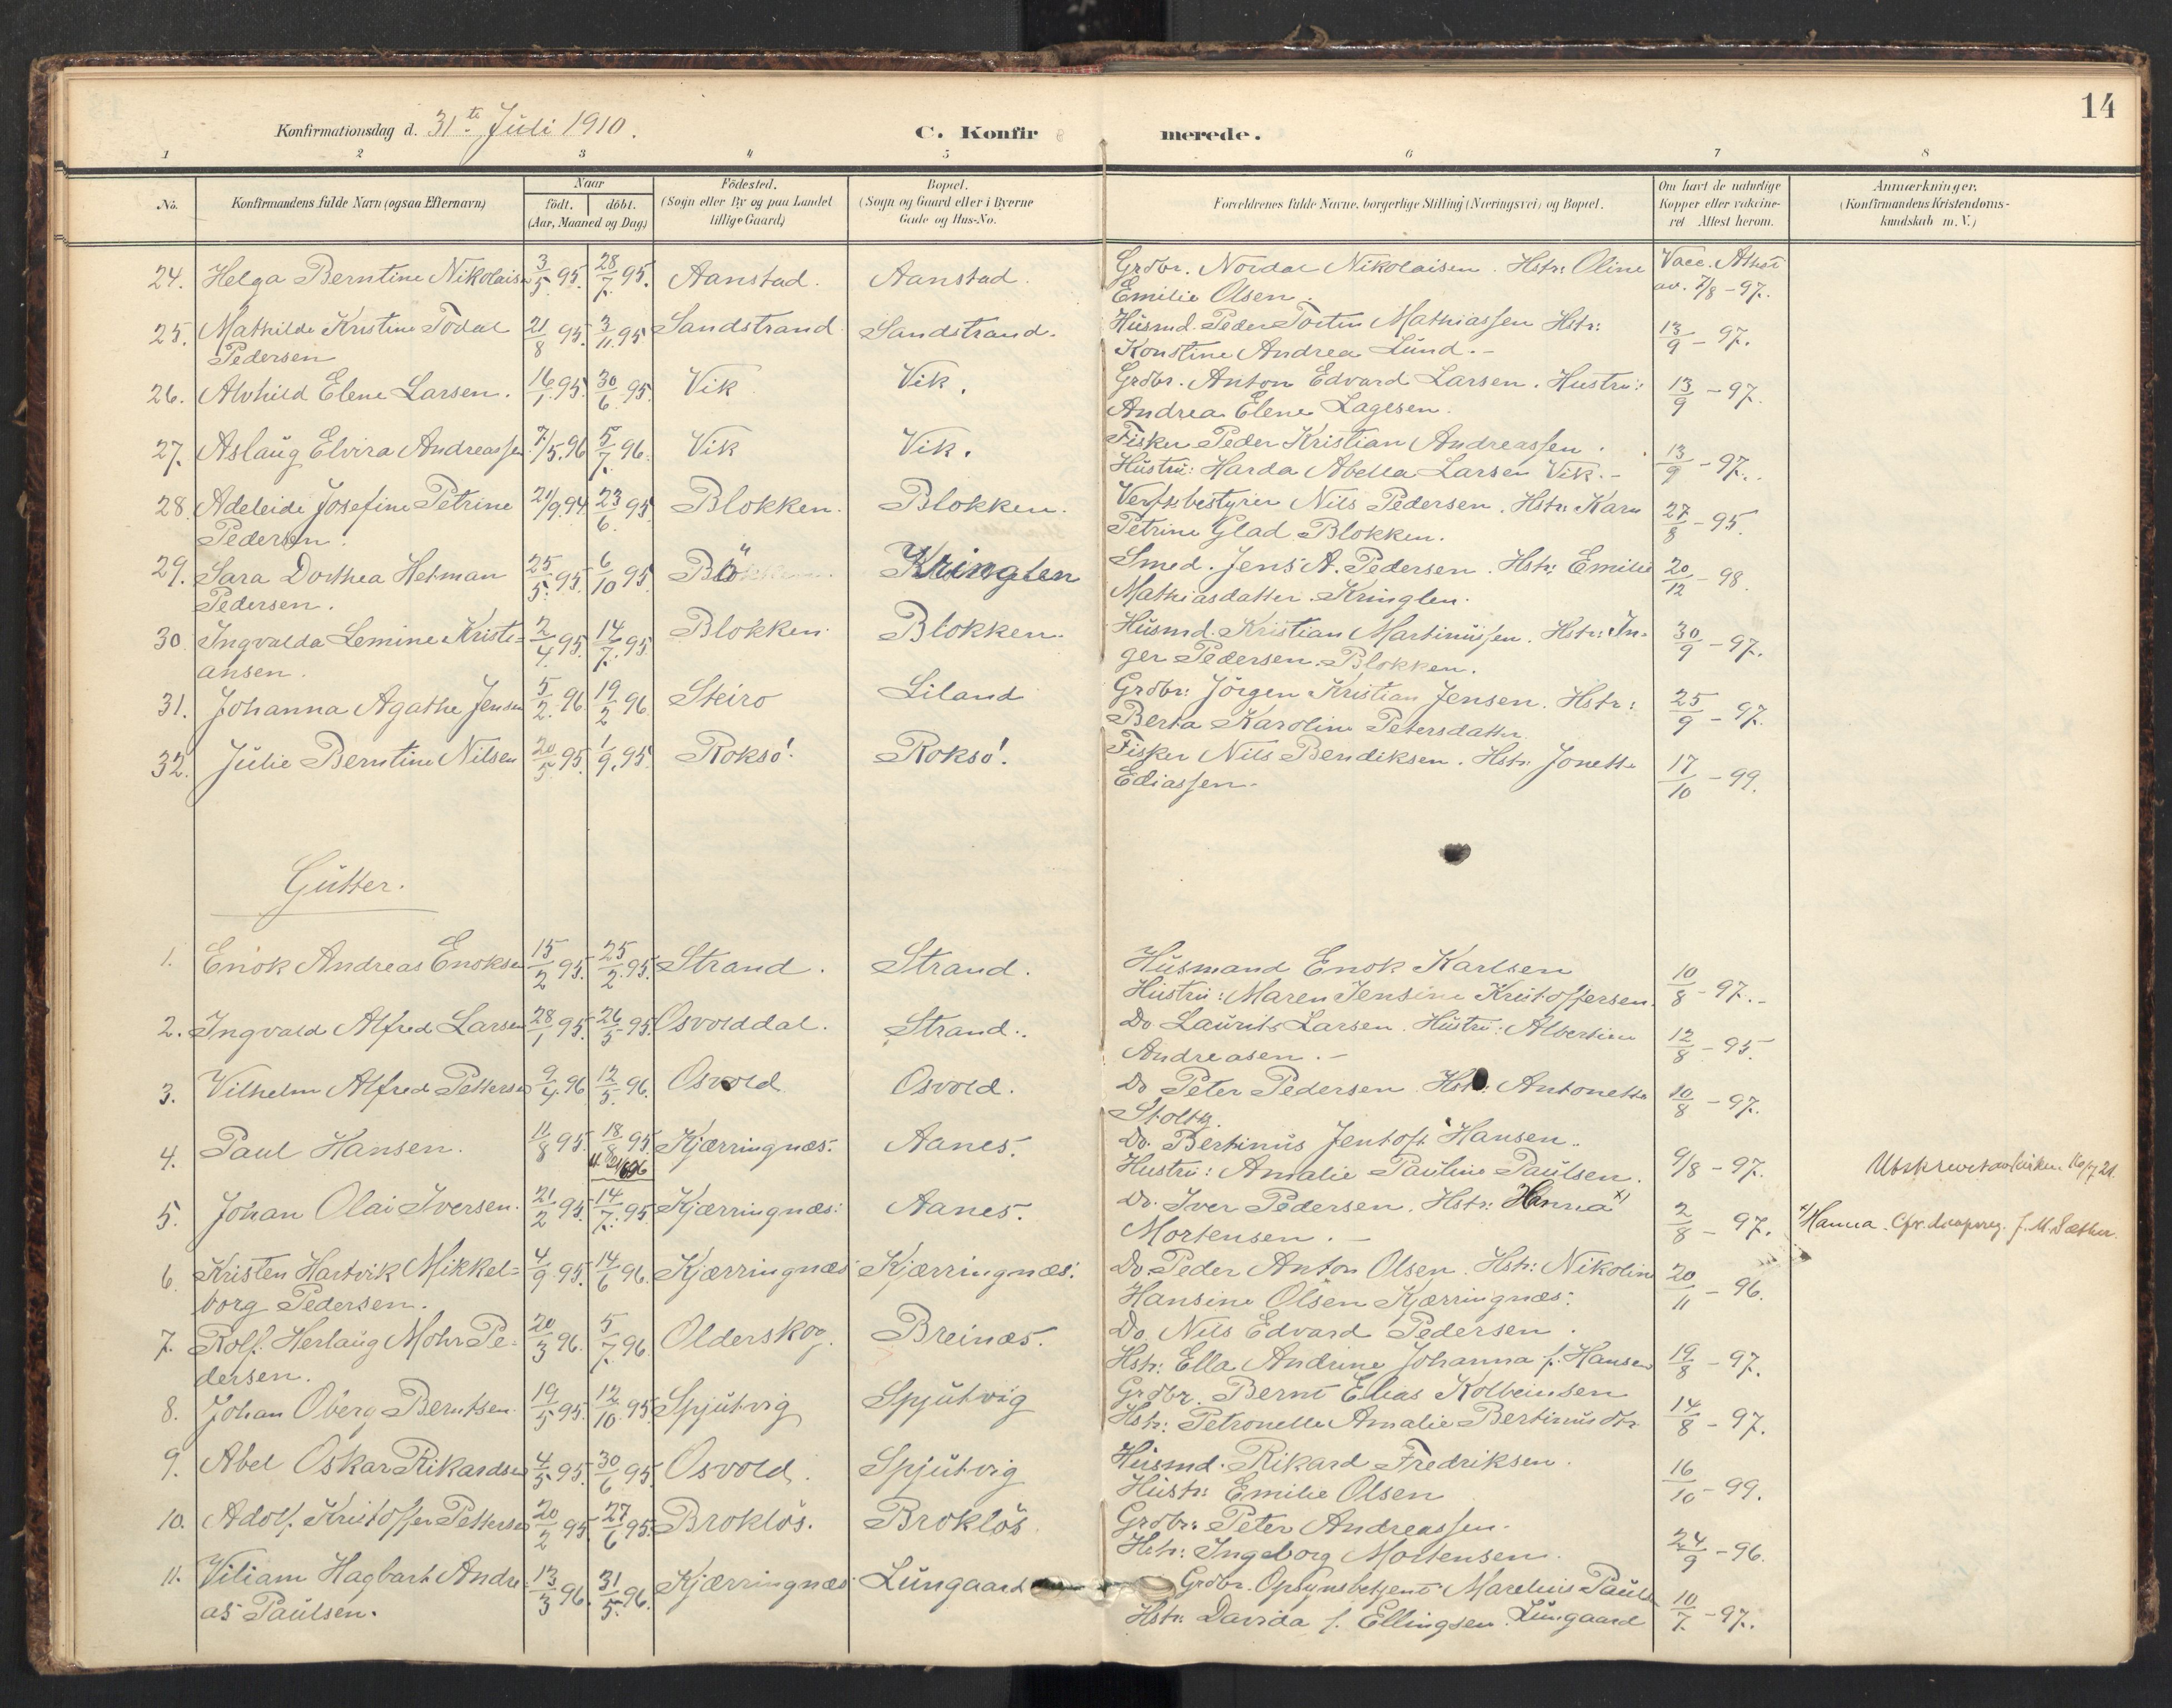 14
Konfirmationsdag d. 31te Juli 1910.
C. Konfir merede.
1 2 3 4 5 6 7 8
No. Konfirmandens fulde Navn (ogsaa Efternavn) Naar Födested. Bopæl. Forældrenes fulde Navne, borgerlige Stilling (Næringsvei) og Bopæl. Om havt de naturlige Anmærkninger.
födt. döbt. (Sogn eller By og paa Landet (Sogn og Gaard eller i Byerne Kopper eller vakcine- (Konfirmandens Kristendoms-
(Aar, Maaned og Dag) tillige Gaard) Gade og Hus-No. ret Attest herom. kundskab m. V.)
24. Helga Berntine Nikolaisen 3/5 95. 28/7 95. Aanstad. Aanstad. Grdbr. Nordal Nikolaisen. Hstr: Oline Vacc. Attest
Emilie Olsen. av. 7/8 - 97.
25. Mathilde Kristine Todal 21/8 95. 3/11 95 Sandstrand. Sandstrand. Husmd. Peder Mathiassen Hstr: 13/9 - 97.
Pedersen Konstine Andrea Lund. -
26. Alvhild Elene Larsen. 16/1 95. 30/6 95. Vik Vik. Grdbr. Anton Edvard Larsen. Hustru: 13/9 - 97.
Andrea Elene Lagesen.
27. Aslaug Elvira Andreassen 7/5 96 5/7 96. Vik Vik. Fisker Peder Kristian Andreassen. 13/9 - 97.
Hustru: Harda Abella Larsen Vik. -
28. Adeleide Josefine Petrine 21/9 94 23/6 95 Blokken. Blokken. Verftsbestyrer Nils Pedersen. Hstr: Karn 27/8 - 95.
Pedersen. Petrine Glad Blokken.
29. Sara Dorthea Hetman 25/5 95. 6/10 95 Bö Kringlen Smed. Jens A. Pedersen. Hstr: Emilie 20/12 - 98.
Pedersen. Mathiasdatter Kringlen.
30. Ingvalda Lemine Kristi= 2/4 95. 14/7 95 Blokken. Blokken. Husmd. Kristian Martinussen. Hstr: In- 30/9 - 97.
ansen. ger Pedersen. Blokken.
31. Johanna Agathe Jensen 5/2 96. 19/2 96 Steiro Liland Grdbr: Jörgen Kristian Jensen. Hstr: 25/9 - 97.
Berta Karoline Petersdatter
32. Julie Berntine Nilsen 20/5 95. 1/9 95. Roksö. Roksö. Fisker Nils Bendiksen. Hstr. Jonette 17/10 - 99.
Ediassen.
Gutter.
1. Enok Andreas Enoksen 15/2 95. 25/2 95. Strand. Strand. Husmand Enok Karlsen 10/8 - 97. -
Hustru: Maren Jensine Kristoffersen.
2. Ingvald Alfred Larsen 28/1 95. 26/5 95. Osvolddal. Strand. Do Laurits Larsen. Hustru: Albertine 12/8 - 95.
Andreasen. -
3. Vilhelm Alfred Pettersen 9/4 96 12/5 96. Osvold Osvold. Do Peter Pedersen. Hstr: Antonette 10/8 - 97.
Stoltz.
4. Paul Hansen. 11/8 95. 18/8 95. Kjærringnæs. Aanes. Do. Bertinus Jentoft Hansen. 9/8 - 97.
Hustru: Amalie Pauline Paulsen.
5. Johan Olai Iversen. 21/2 95. 14/7 95 Kjærringnæs. Aanes. Do. Iver Pedersen. Hstr: Hanna x) 2/8 - 97. x) Hanna. Cfr. f. M. Sæther.
Mortensen. -
6. Kristen Hartvik Mikkel= 4/9 95. 14/6 96. Kjærringnæs Kjærringnæs. Do Peder Anton Olsen. Hstr: Nikoline 20/11 - 96.
borg Pedersen. Hansine Olsen Kjærringnæs.
7. Rolf Herlaug Mohr Pe- 20/3 96. 5/7 96. Olderskog. Breinæs. Do. Nils Edvard Pedersen. 19/8 - 97.
dersen. Hstr: Ella Andrine Johanna f. Hansen
8. Johan Oberg Berntsen. 19/5 95. 12/10 95. Spjutvig Spjutvig Grdbr. Bernt Elias Kolbeinsen 14/8 - 97.
Hstr: Petronella Amalie Bertinusdtr
9. Abel Oskar Rikardsen 4/5 95. 30/6 95. Osvold. Spjutvig Husmd. Rikard Fredriksen. 16/10 - 99.
Hustr: Emilie Olsen
10. Adolf Kristoffer Pettersen 20/2 95. 27/6 95. Broklös. Broklös Grdbr: Peter Andreassen. 24/9 - 96.
Hstr: Ingeborg Mortensen.
11. Viliam Hagbart Andre= 13/3 96. 31/5 96. Kjærringnæs Lungaard Grdbr. Opsynsbetjent Marelius Paulsen 10/7 - 97.
as Paulsen. Hstr: Davida f. Ellingsen Lungaard